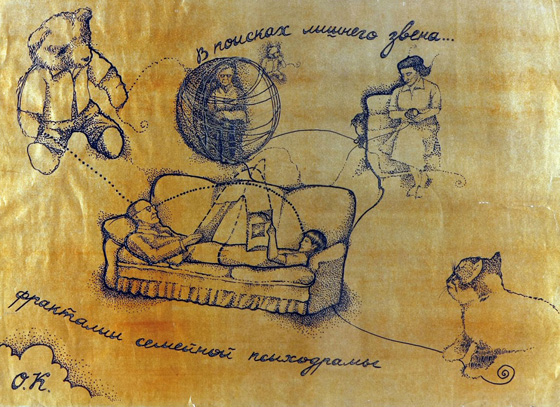 В поисках лишнего звена...
фракталии семейной психодрамы
О.К.